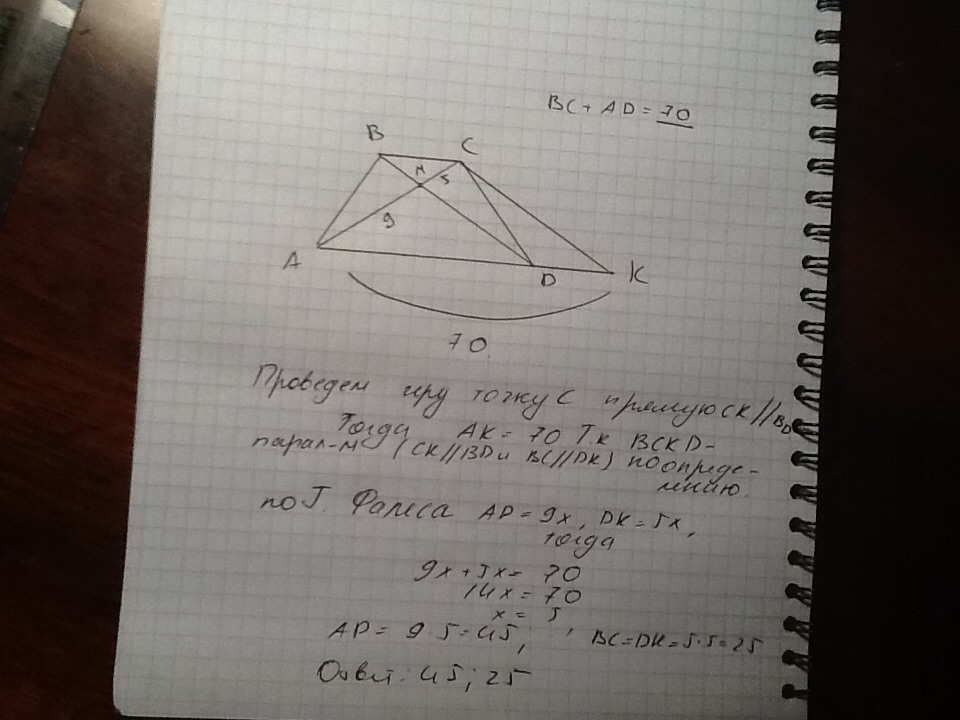 BC + AD = 70
B
C
M
5
9
A
D
K
70.
Проведем через точку C прямую CK // BD
Тогда AK = 70 Т.к BCKD -
парал-м (CK // BD и BC // DK) по опреде-
лению.
по Т. Фалеса AD = 9x, DK = 5x,
тогда
9x + 5x = 70
14x = 70
x = 5,
AD = 9·5 = 45, BC = DK = 5·5 = 25
Ответ: 45; 25